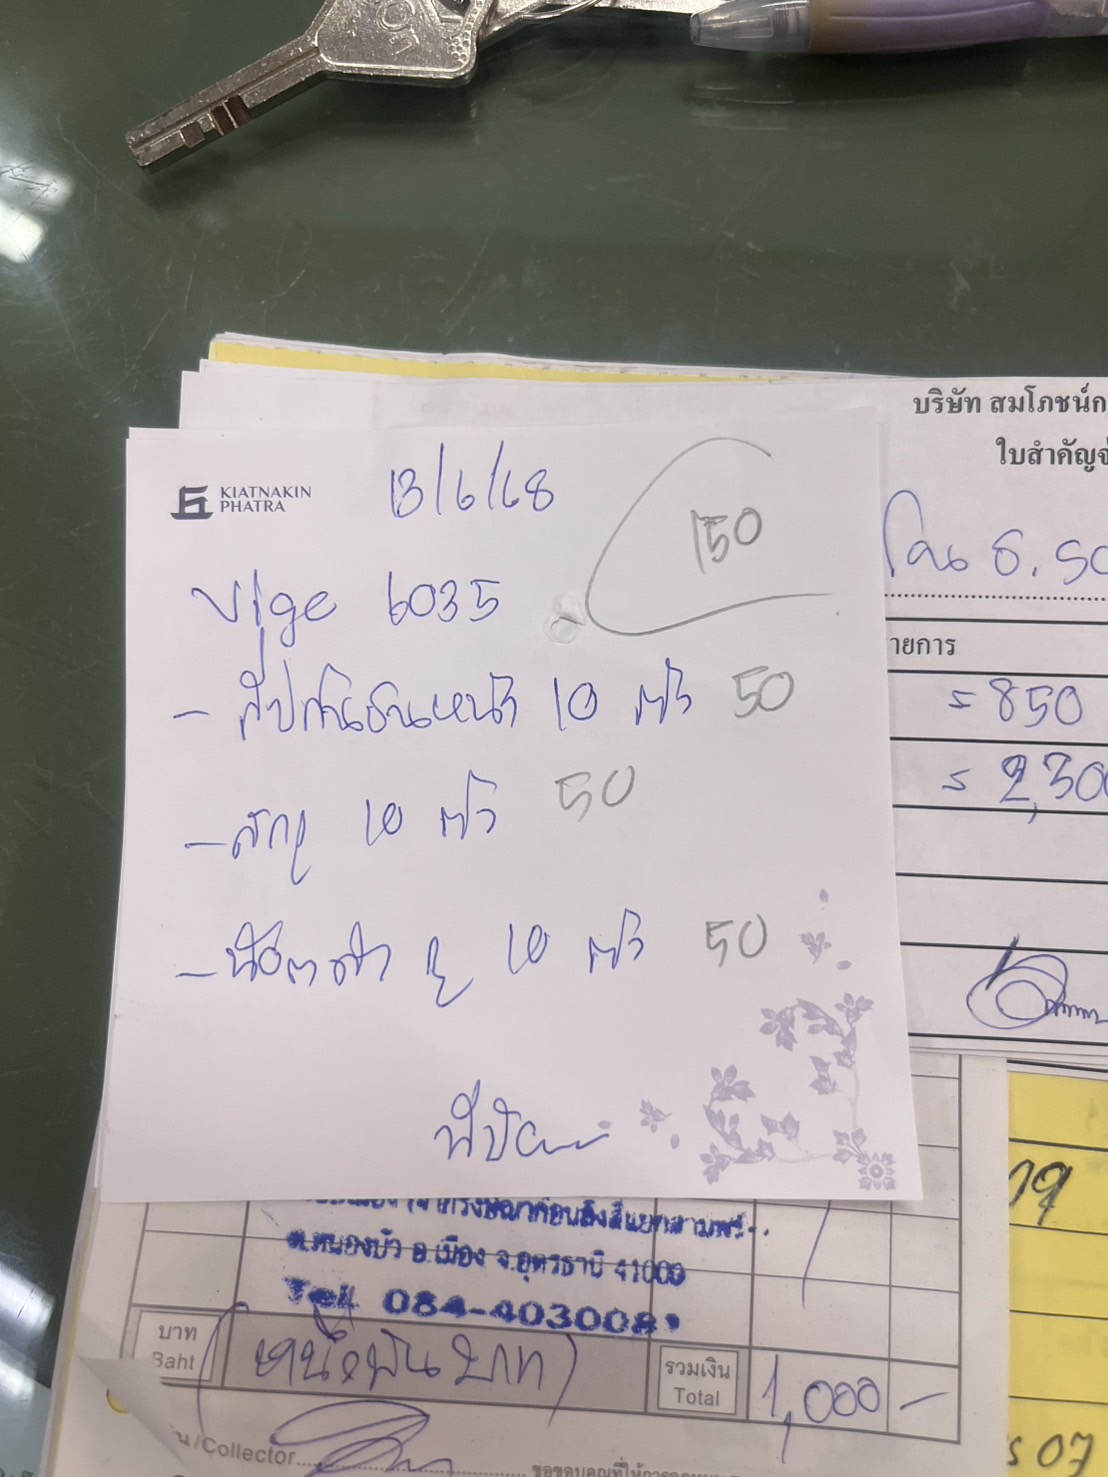 บริษัท สมโภชน์ก
ใบสำคัญจ่
KIATNAKIN
PHATRA
13/6/68
150
โอน 5.50
Vigo 6035
ายการ
- กิ๊ปกันชนหน้า 10 ตัว 50
= 850
- สกรู 10 ตัว 50
= 2,300
- น๊อตดำ รู 10 ตัว 50
ต.หนองบัว อ.เมือง จ.อุดรธานี 41000
Tell 084-403008
บาท
Baht
(หนึ่งพันบาท)
รวมเงิน
Total
1,000 -
น/Collector
07